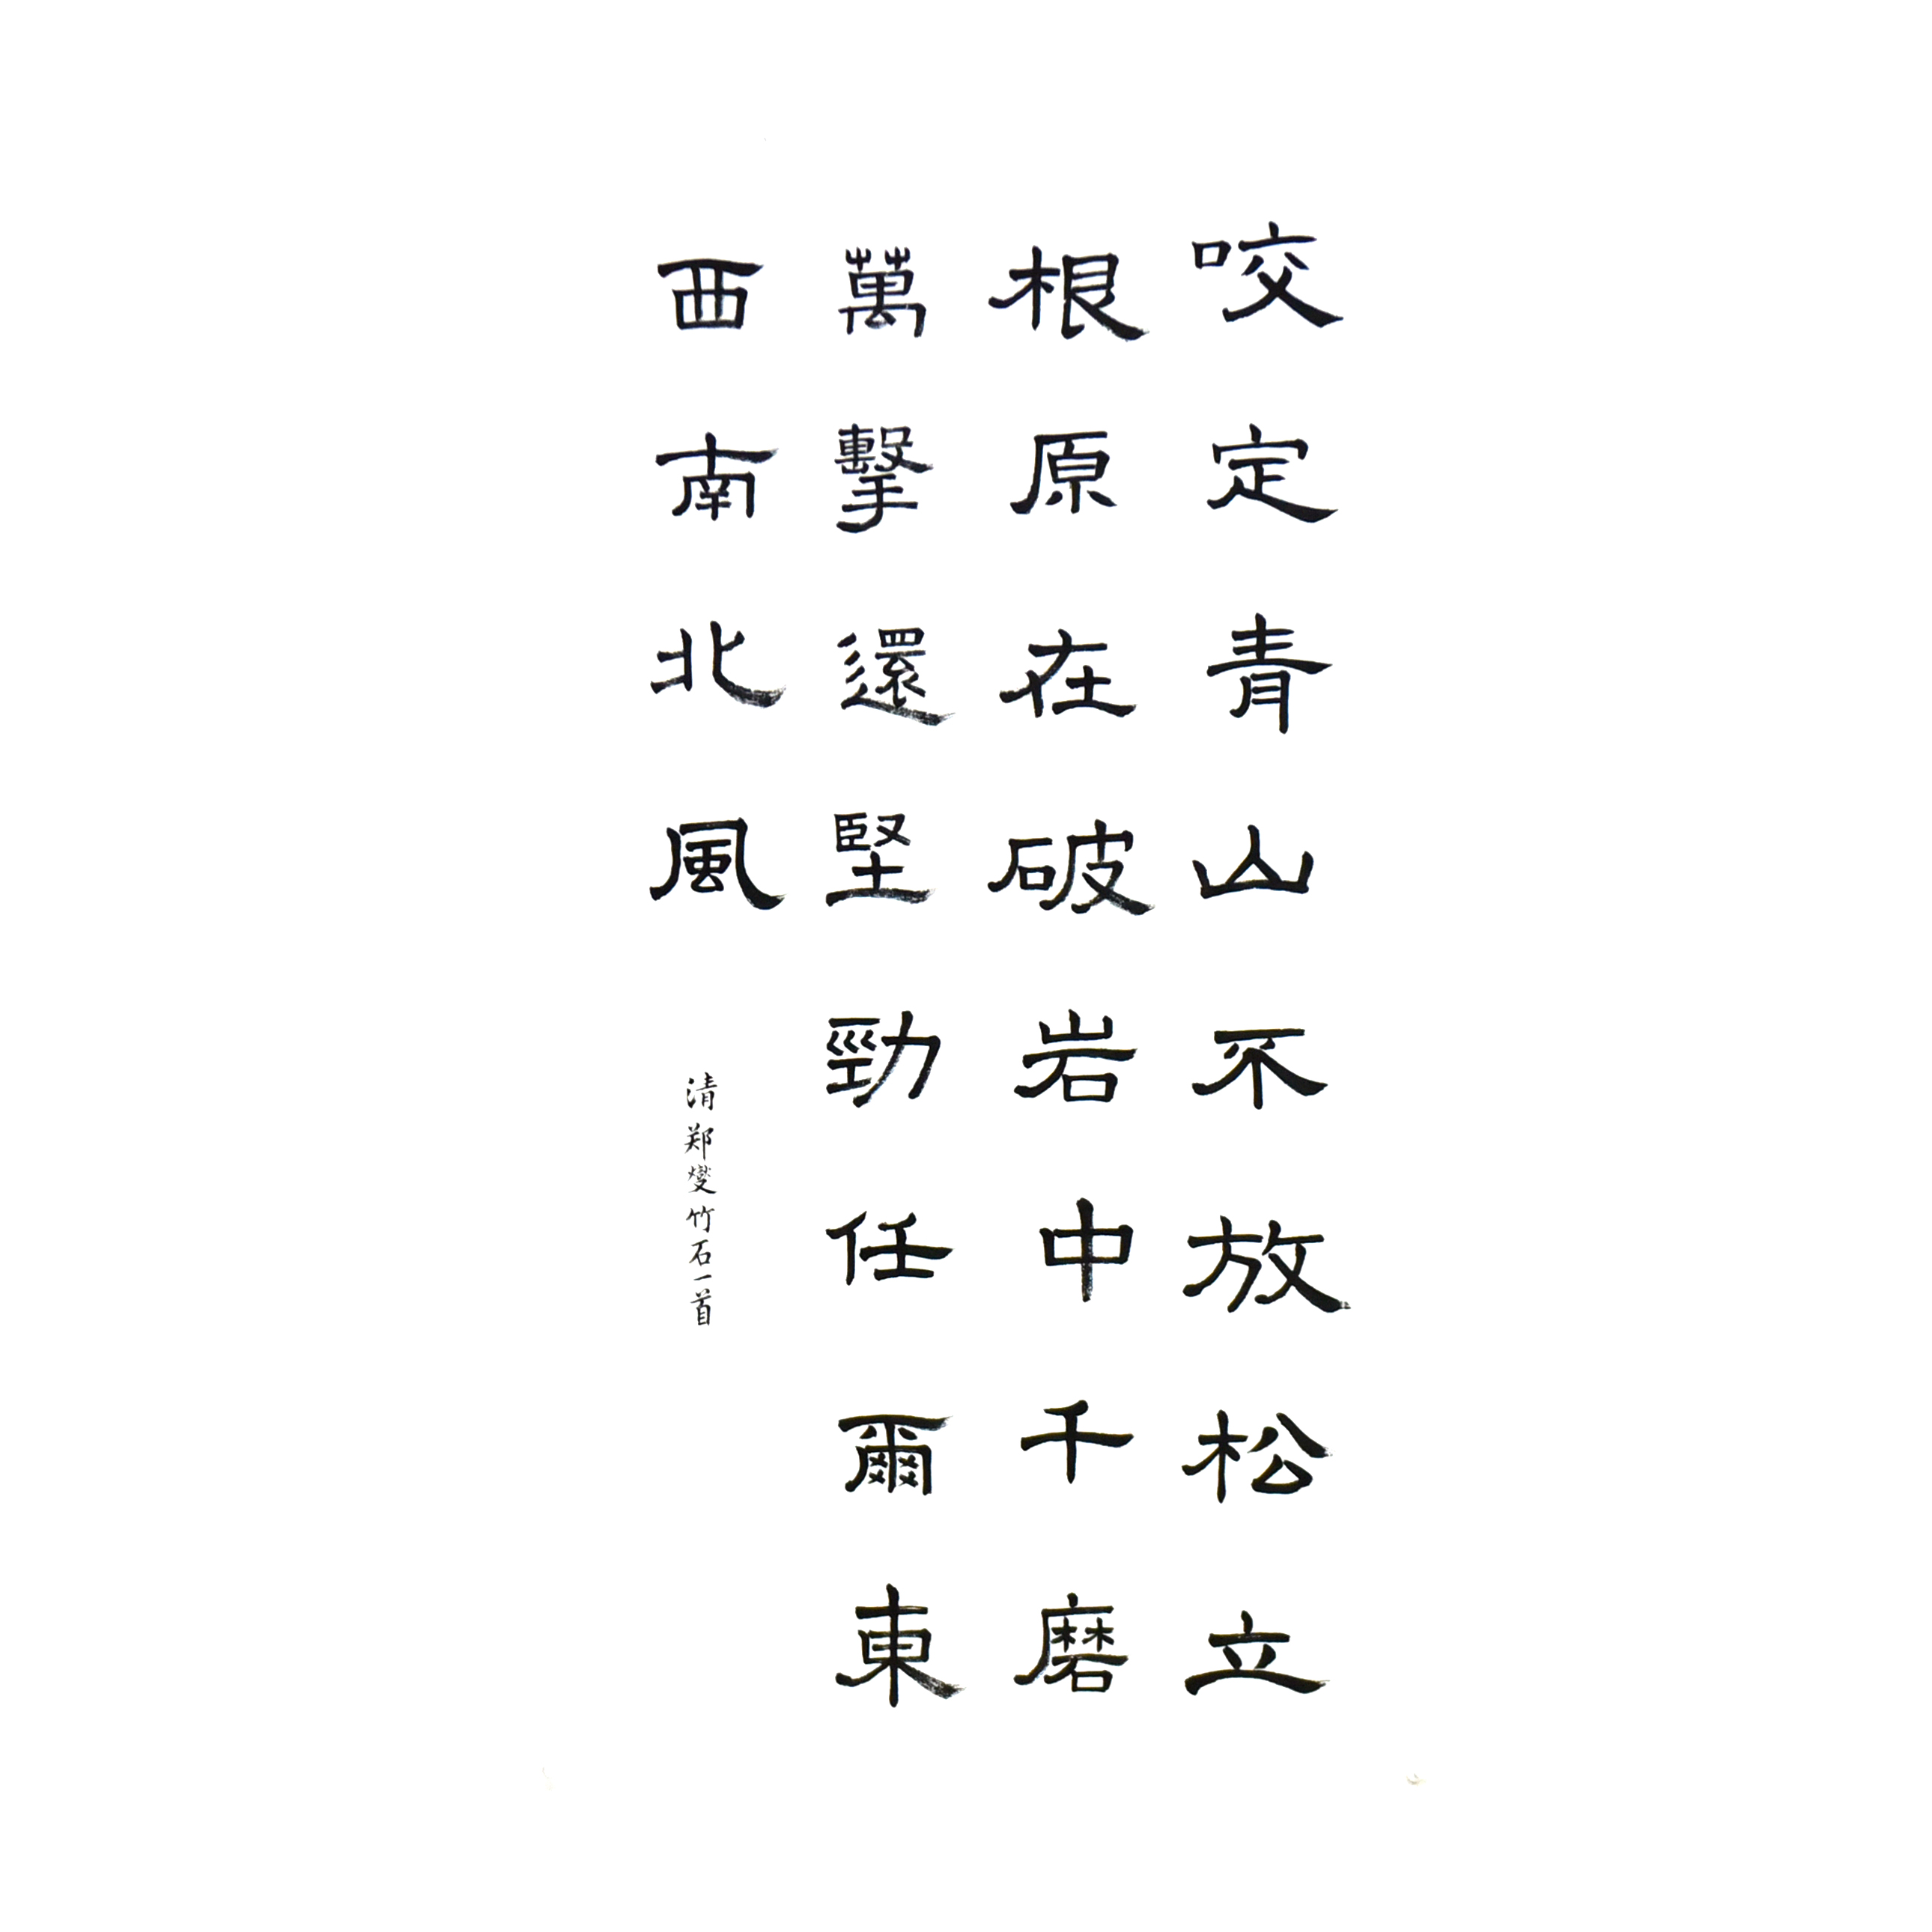 咬定青山不放松立
根原在破岩中千磨
萬擊還堅勁任爾東
西南北風
清郑燮竹石一首